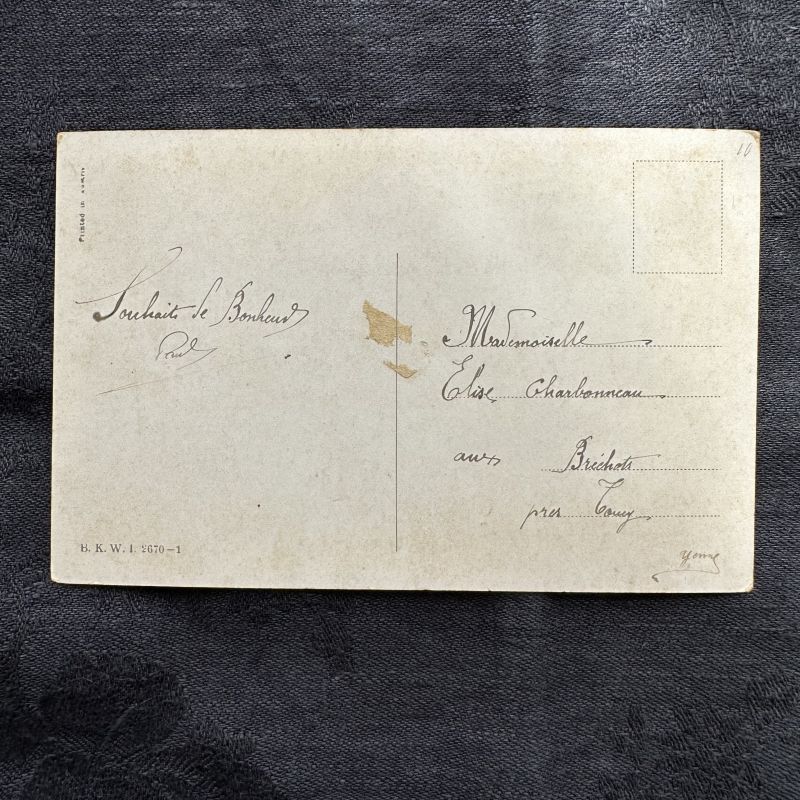 10
Printed in Austria
Souhaits de Bonheur
Paul
Mademoiselle
Elise Charbonneau
aux Bréchots
près Toucy
Yonne
B. K. W. I. 2670-1